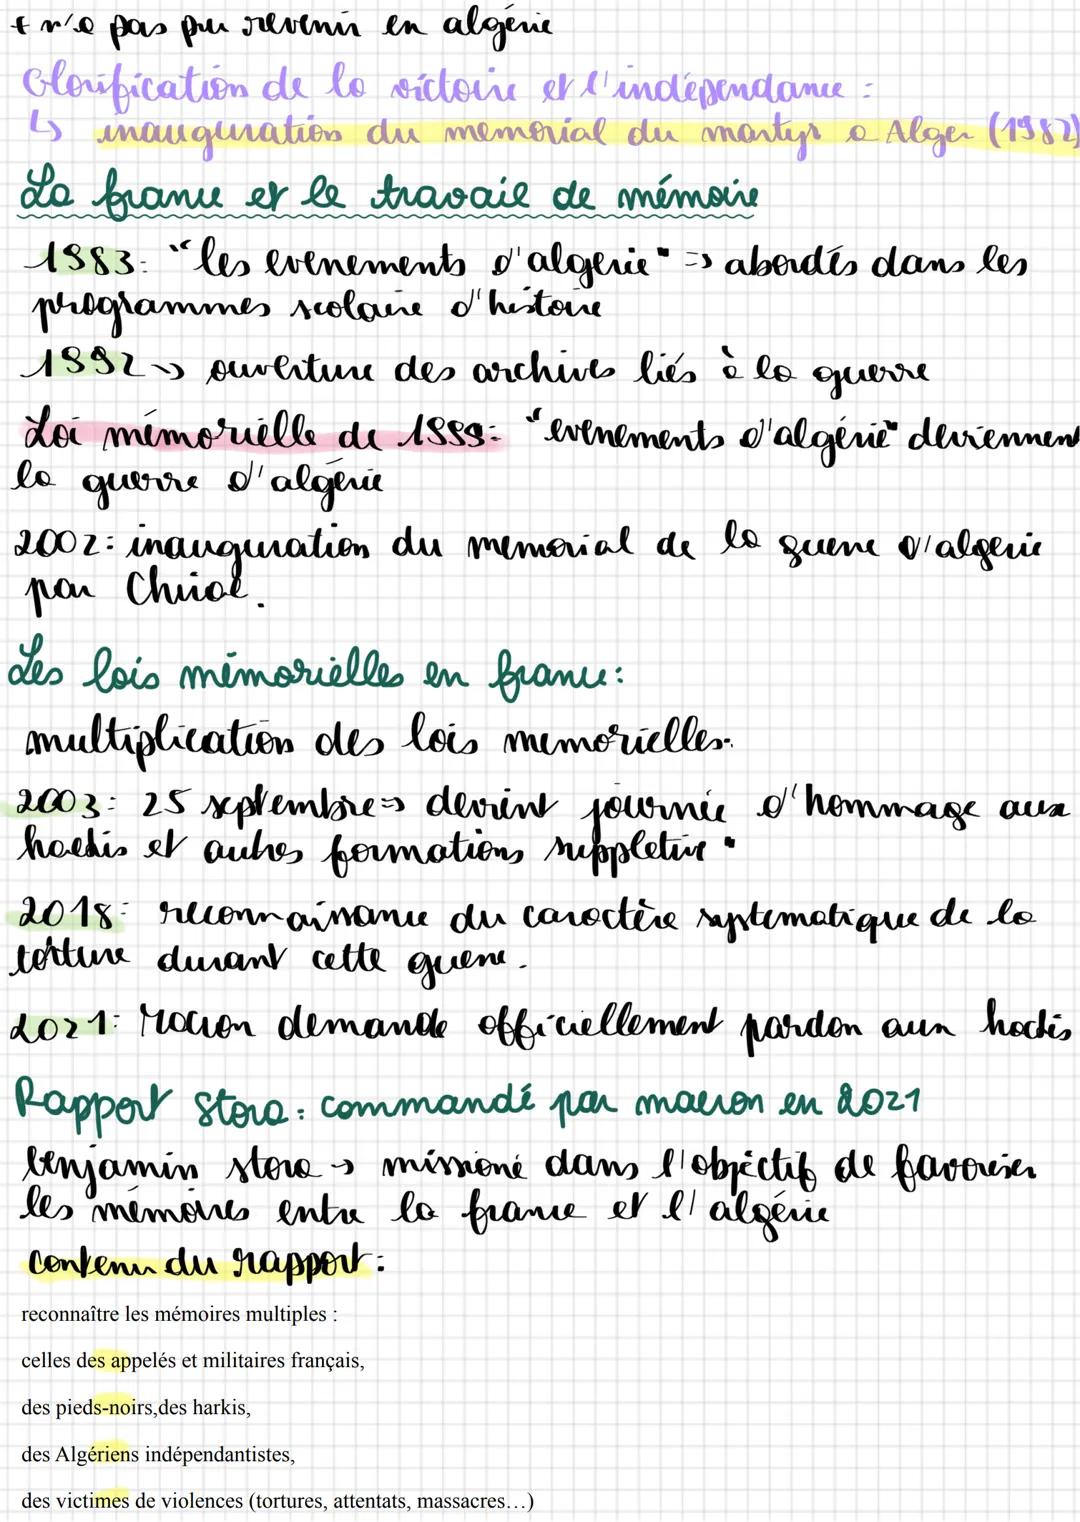 + n'a pas pu revenir en algérie
Glorification de la victoire et l'indépendance :
↳ inauguration du memorial du martyr a Alger (1982)
La france et le travail de mémoire
1983: "les evenements d'algerie" => abordés dans les
programmes scolaire d'histoire
1992 -> ouverture des archives liés à la guerre
Loi mémorielle de 1999: "evenements d'algérie" deviennent
la guerre d'algérie
2002: inauguration du memorial de la guerre d'algerie
par Chirac.
Les lois mémorielles en france:
multiplication des lois memorielles.
2003: 25 septembre => devint journée d'hommage aux
harkis et autres formations suppletive "
2018: reconnaissance du caractère systematique de la
torture durant cette guerre.
2021: Macron demande officiellement pardon aux harkis
Rapport Stora: commandé par macron en 2021
benjamin stora -> missioné dans l'objectif de favoriser
les mémoires entre la france et l'algérie
contenu du rapport:
reconnaître les mémoires multiples :
celles des appelés et militaires français,
des pieds-noirs,des harkis,
des Algériens indépendantistes,
des victimes de violences (tortures, attentats, massacres…)